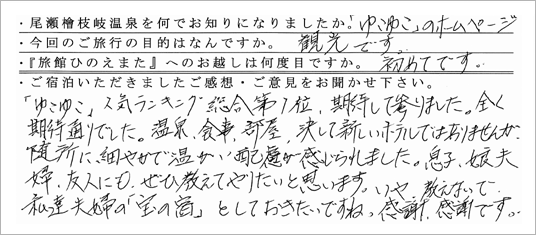 ・尾瀬檜枝岐温泉を何でお知りになりましたか。「ゆこゆこ」のホームページ
・今回のご旅行の目的はなんですか。 観光です。
・『旅館ひのえまた』へのお越しは何度目ですか。 初めてです。
・ご宿泊いただきましたご感想・ご意見をお聞かせ下さい。
「ゆこゆこ」人気ランキング総合第1位、期待して参りました。全く
期待通りでした。温泉、食事、部屋、決して新しいホテルではありませんが、
随所に、細やかで温かい配慮が感じられました。息子、娘夫
婦、友人にも、ぜひ教えてやりたいと思います。いや、教えないで
私達夫婦の「宝の宿」としておきたいですね。感謝、感謝です。